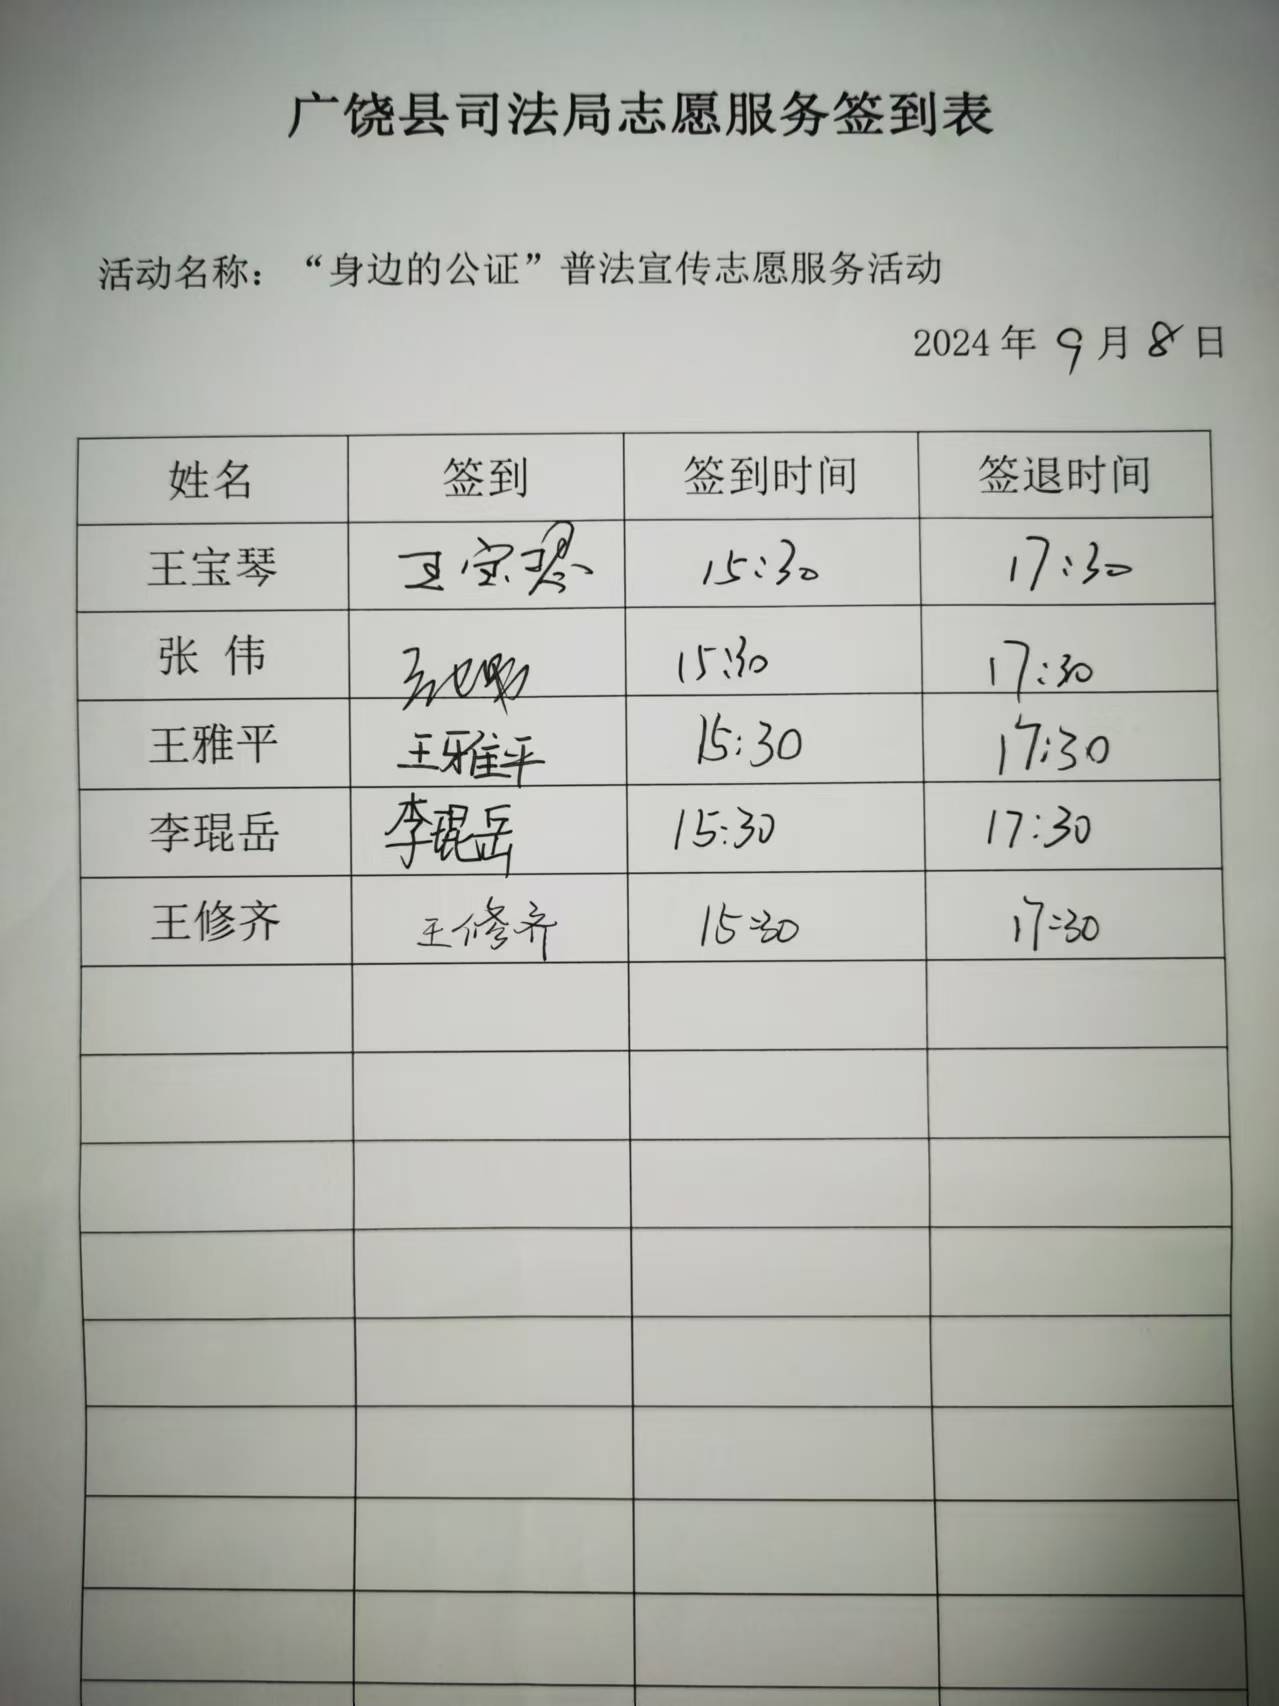 广饶县司法局志愿服务签到表
活动名称：“身边的公证”普法宣传志愿服务活动
2024年9月8日
姓名 签到 签到时间 签退时间
王宝琴 王宝琴 15:30 17:30
张 伟 15:30 17:30
王雅平 王雅平 15:30 17:30
李琨岳 李琨岳 15:30 17:30
王修齐 王修齐 15:30 17:30